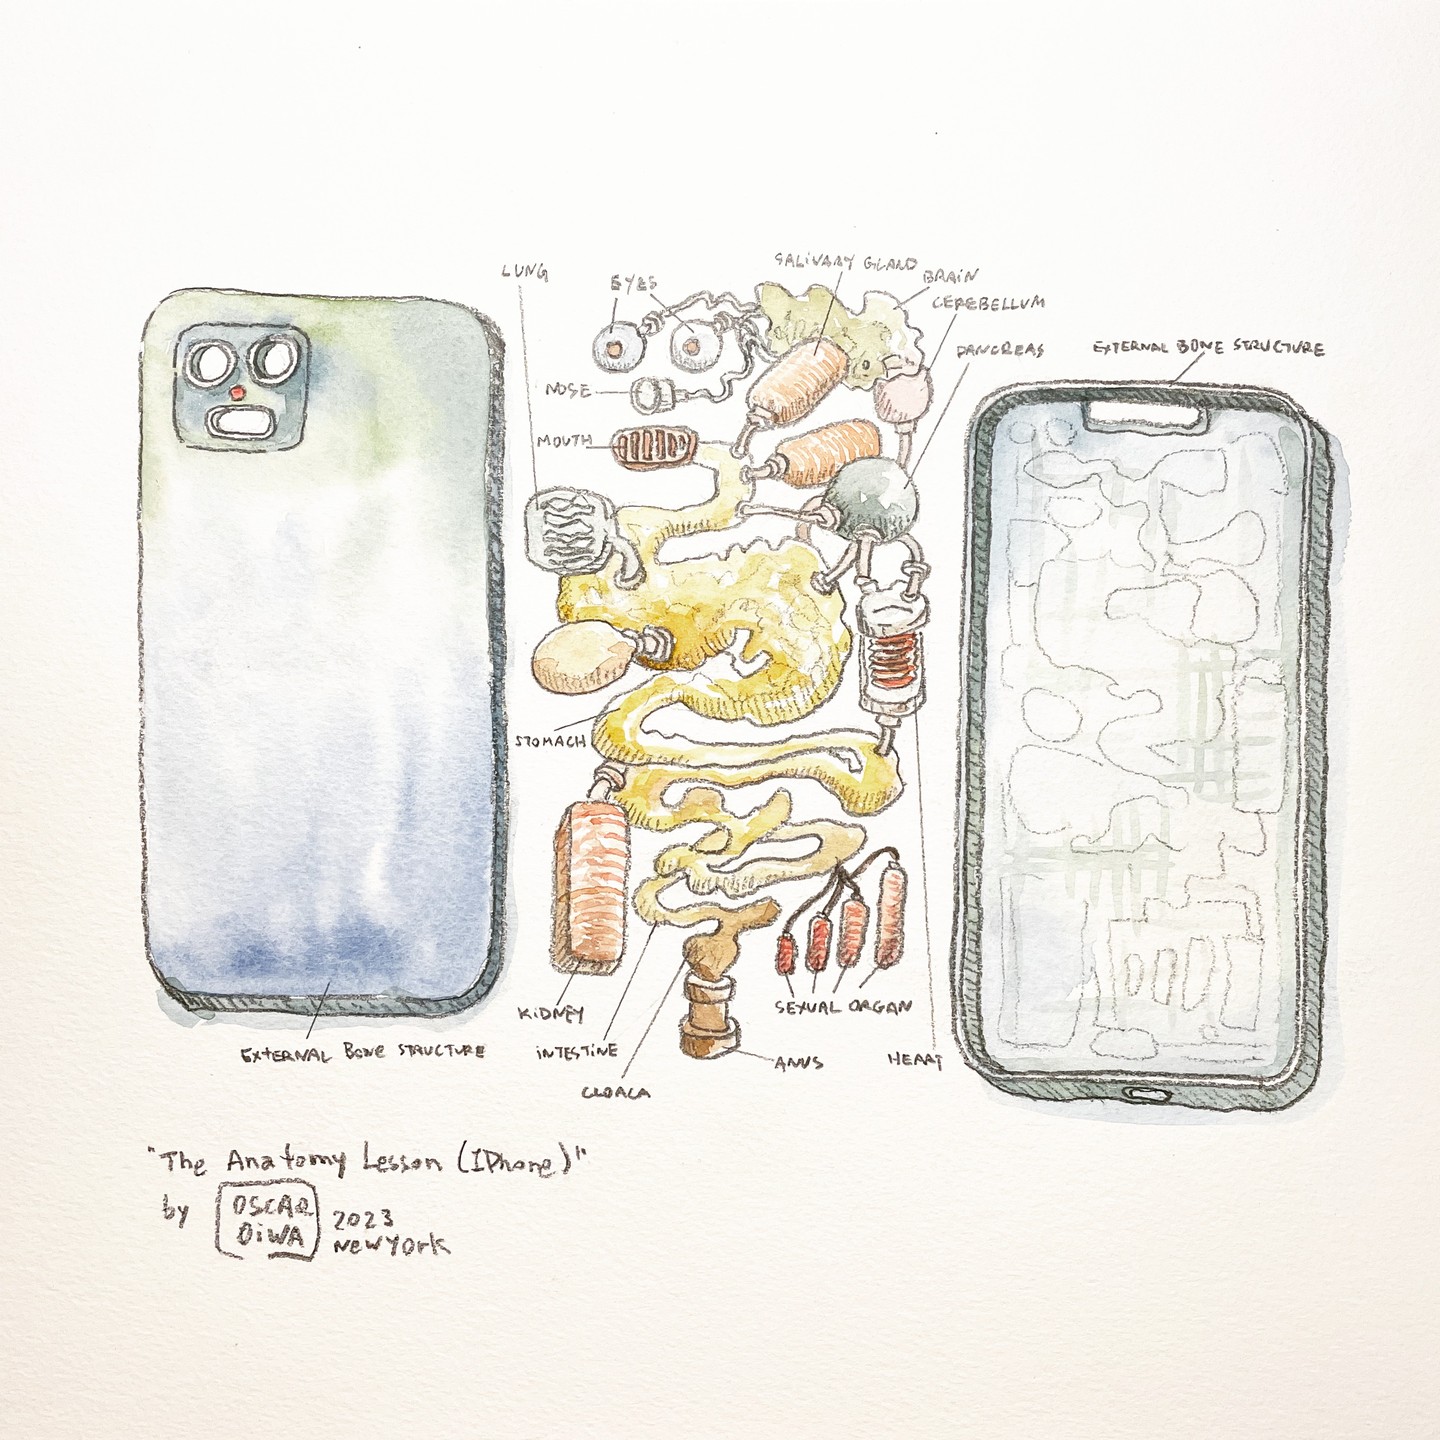 LUNG
EYES
SALIVARY GLAND
BRAIN
CEREBELLUM
PANCREAS
EXTERNAL BONE STRUCTURE
NOSE
MOUTH
STOMACH
KIDNEY
SEXUAL ORGAN
EXTERNAL BONE STRUCTURE
INTESTINE
ANUS
HEART
CLOACA
"The Anatomy Lesson (IPhone)"
by OSCAR OiWA 2023
NEW YORK